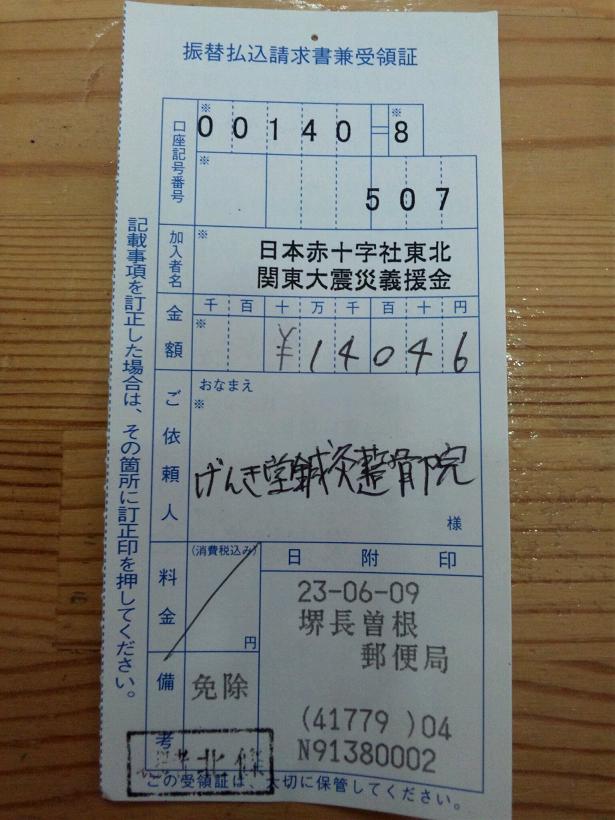 振替払込請求書兼受領証
口座記号番号
※
※
00140=8
※
507
加入者名
※
日本赤十字社東北
関東大震災義援金
金額
千百十万千百十円
※
¥14046
ご依頼人
おなまえ
※
げんき堂鍼灸整骨院
様
料金
(消費税込み)
円
日附印
23-06-09
堺長曽根
郵便局
(41779 )04
N91380002
備考
免除
北條
この受領証は、大切に保管してください。
記載事項を訂正した場合は、その箇所に訂正印を押してください。